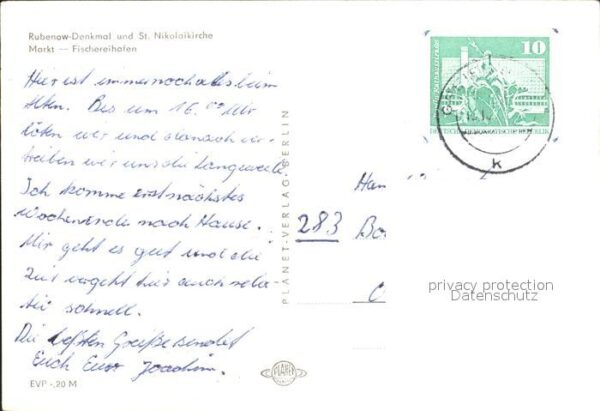 Rubenow-Denkmal und St. Nikolaikirche
Markt — Fischereihafen
Hier ist immer noch alles beim
Alten. Bis um 16.00 Uhr
löten wir und danach ver-
treiben wir uns die Langeweile.
Ich komme erst nächstes
Wochenende nach Hause.
Mir geht es gut und die
Zeit vergeht hier auch rela-
tiv schnell.
Die besten Grüße sendet
Euch Euer Joachim.
EVP -,20 M
PLANET-VERLAG BERLIN
PLANET
10
DEUTSCHE DEMOKRATISCHE REPUBLIK
k
283
privacy protection
Datenschutz